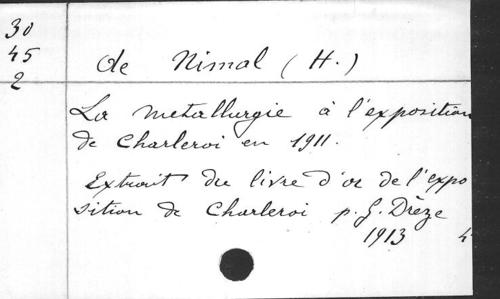 30
45
2
de Nimal (H.)
La metallurgie à l'exposition
de Charleroi en 1911.
Extrait du livre d'or de l'expo
sition de Charleroi p. G. Drèze
1913 4